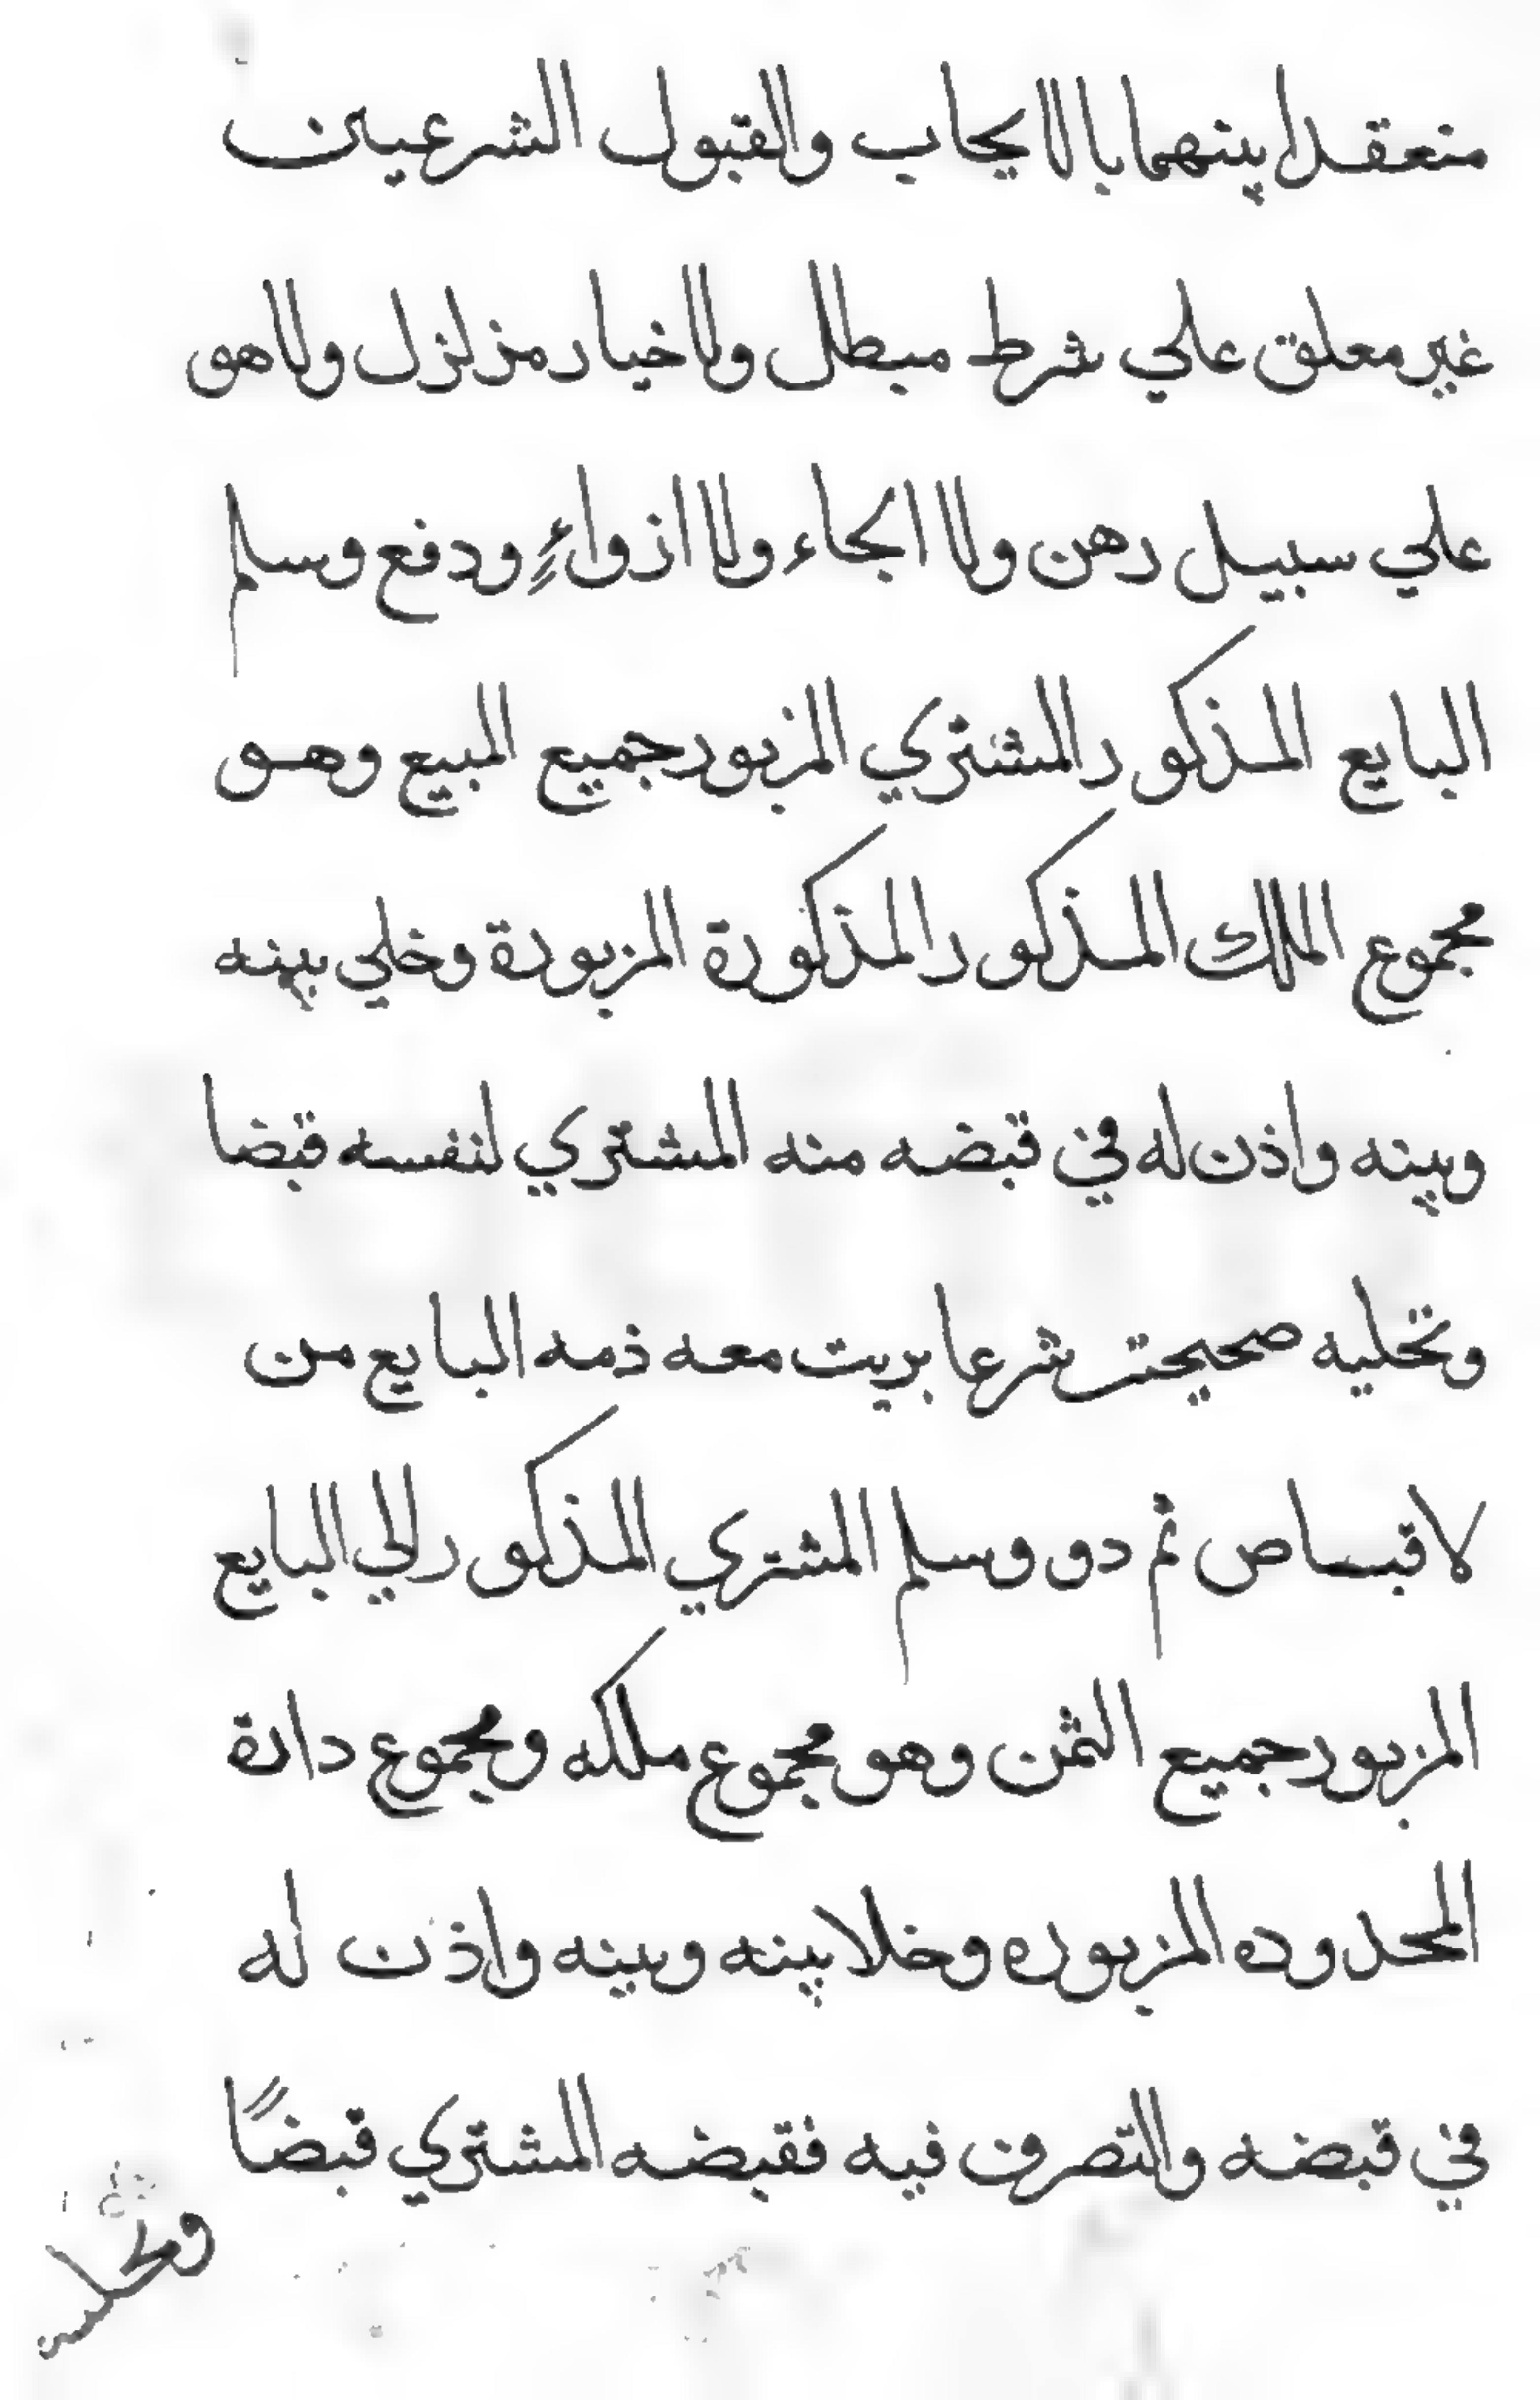 منعقدا بينهما بالايجاب والقبول الشرعيين
غير معلق علي شرط مبطل ولا خيار مزلزل ولا هو
علي سبيل رهن ولا الجاء ولا ازواءٍ ودفع وسلم
البايع المذكور المشتري المزبور جميع المبيع وهو
مجموع الملك المذكور المذكورة المزبورة وخلي بينه
وبينه واذن له في قبضه منه المشتري لنفسه قبضا
وتخليه صحيحت شرعا بريت معه ذمه البايع من
لاقبساص ثم دو وسلم المشتري المذكور الي البايع
المزبور جميع الثمن وهو مجموع ملكه ومجموع دارة
المحدوده المزبوره وخلا بينه وبينه واذن له
في قبضه والتصرف فيه فقبضه المشتري قبضًا
وتخليه